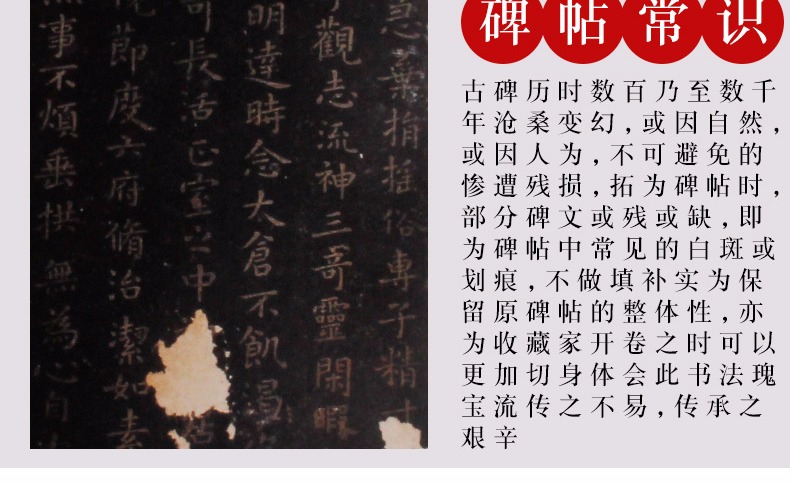 碑帖常识
古碑历时数百乃至数千
年沧桑变幻,或因自然,
或因人为,不可避免的
惨遭残损,拓为碑帖时,
部分碑文或残或缺,即
为碑帖中常见的白斑或
划痕,不做填补实为保
留原碑帖的整体性,亦
为收藏家开卷之时可以
更加切身体会此书法瑰
宝流传之不易,传承之
艰辛
急棄捐摇俗專子精
觀志流神三奇靈閑暇
明達時念大倉不飢渴
長活正室之中
節度六府脩治潔如素
事不煩垂拱無為心自